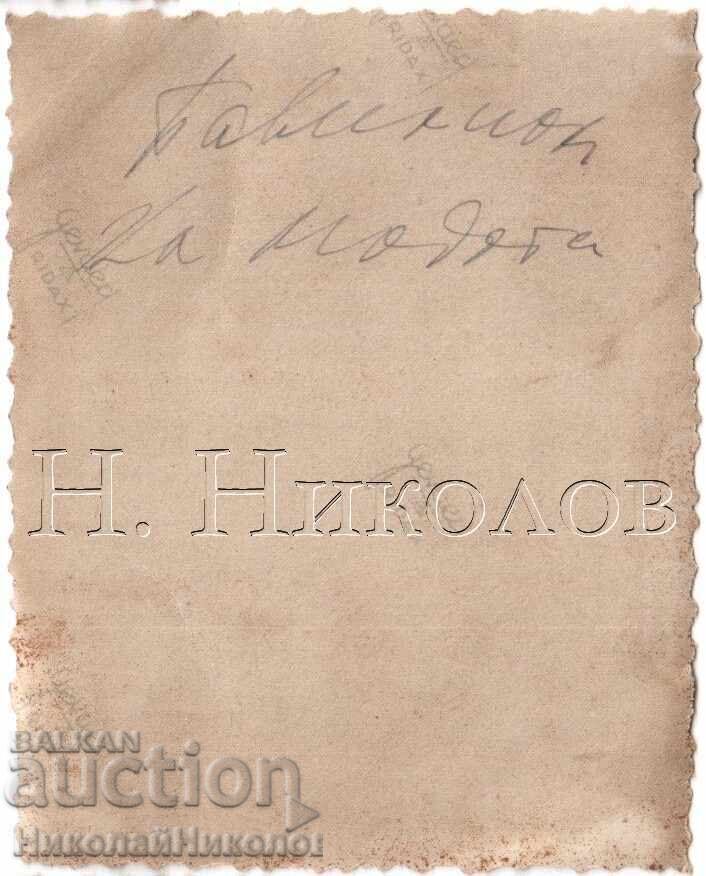 Павилион
на модата
Н. Николов
BALKAN
auction
НиколайНиколов